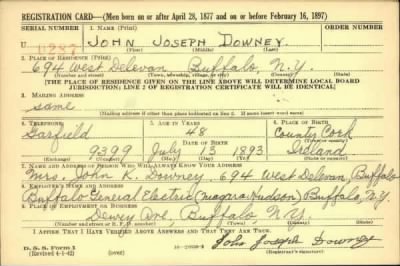 REGISTRATION CARD—(Men born on or after April 28, 1877 and on or before February 16, 1897)
SERIAL NUMBER 1. NAME (Print)
U 1287 John Joseph Downey
(First) (Middle) (Last)
2. PLACE OF RESIDENCE (Print)
694 West Delevan Buffalo, N.Y.
(Number and street) (Town, township, village, or city) (County) (State)
[THE PLACE OF RESIDENCE GIVEN ON THE LINE ABOVE WILL DETERMINE LOCAL BOARD
JURISDICTION; LINE 2 OF REGISTRATION CERTIFICATE WILL BE IDENTICAL]
3. MAILING ADDRESS
same
[Mailing address if other than place indicated on line 2. If same insert word same]
4. TELEPHONE 5. AGE IN YEARS 6. PLACE OF BIRTH
Garfield 48 County Cork
DATE OF BIRTH
9399 July 13 1893 Ireland
(Exchange) (Number) (Mo.) (Day) (Yr.) (State or country)
7. NAME AND ADDRESS OF PERSON WHO WILL ALWAYS KNOW YOUR ADDRESS
Mrs. John K. Downey. 694 West Delevan, Buffalo
8. EMPLOYER'S NAME AND ADDRESS
Buffalo General Electric (Niagara Hudson) Buffalo, N.Y.
9. PLACE OF EMPLOYMENT OR BUSINESS
Dewey Ave, Buffalo, N.Y.
(Number and street or R. F. D. number) (Town) (County) (State)
I AFFIRM THAT I HAVE VERIFIED ABOVE ANSWERS AND THAT THEY ARE TRUE.
D. S. S. Form 1
(Revised 4-1-42) John Joseph Downey
(Registrant's signature)